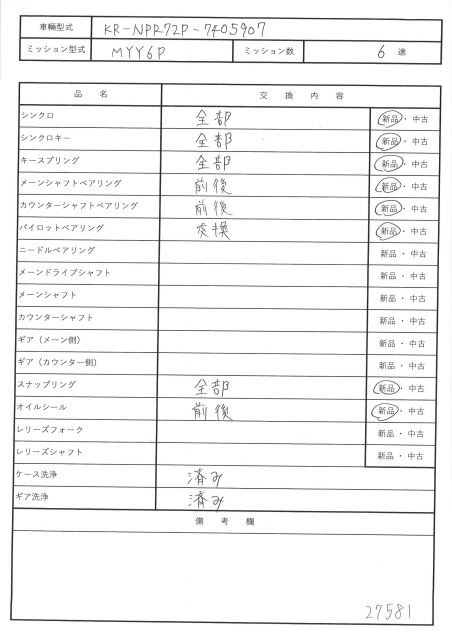 車輛型式 KR-NPR72P-7405907
ミッション型式 MYY6P ミッション数 6 速
品 名 交 換 内 容
シンクロ 全部 新品・中古
シンクロキー 全部 新品・中古
キースプリング 全部 新品・中古
メーンシャフトベアリング 前後 新品・中古
カウンターシャフトベアリング 前後 新品・中古
パイロットベアリング 交換 新品・中古
ニードルベアリング 新品・中古
メーンドライブシャフト 新品・中古
メーンシャフト 新品・中古
カウンターシャフト 新品・中古
ギア（メーン側） 新品・中古
ギア（カウンター側） 新品・中古
スナップリング 全部 新品・中古
オイルシール 前後 新品・中古
レリーズフォーク 新品・中古
レリーズシャフト 新品・中古
ケース洗浄 済み
ギア洗浄 済み
備 考 欄
27581